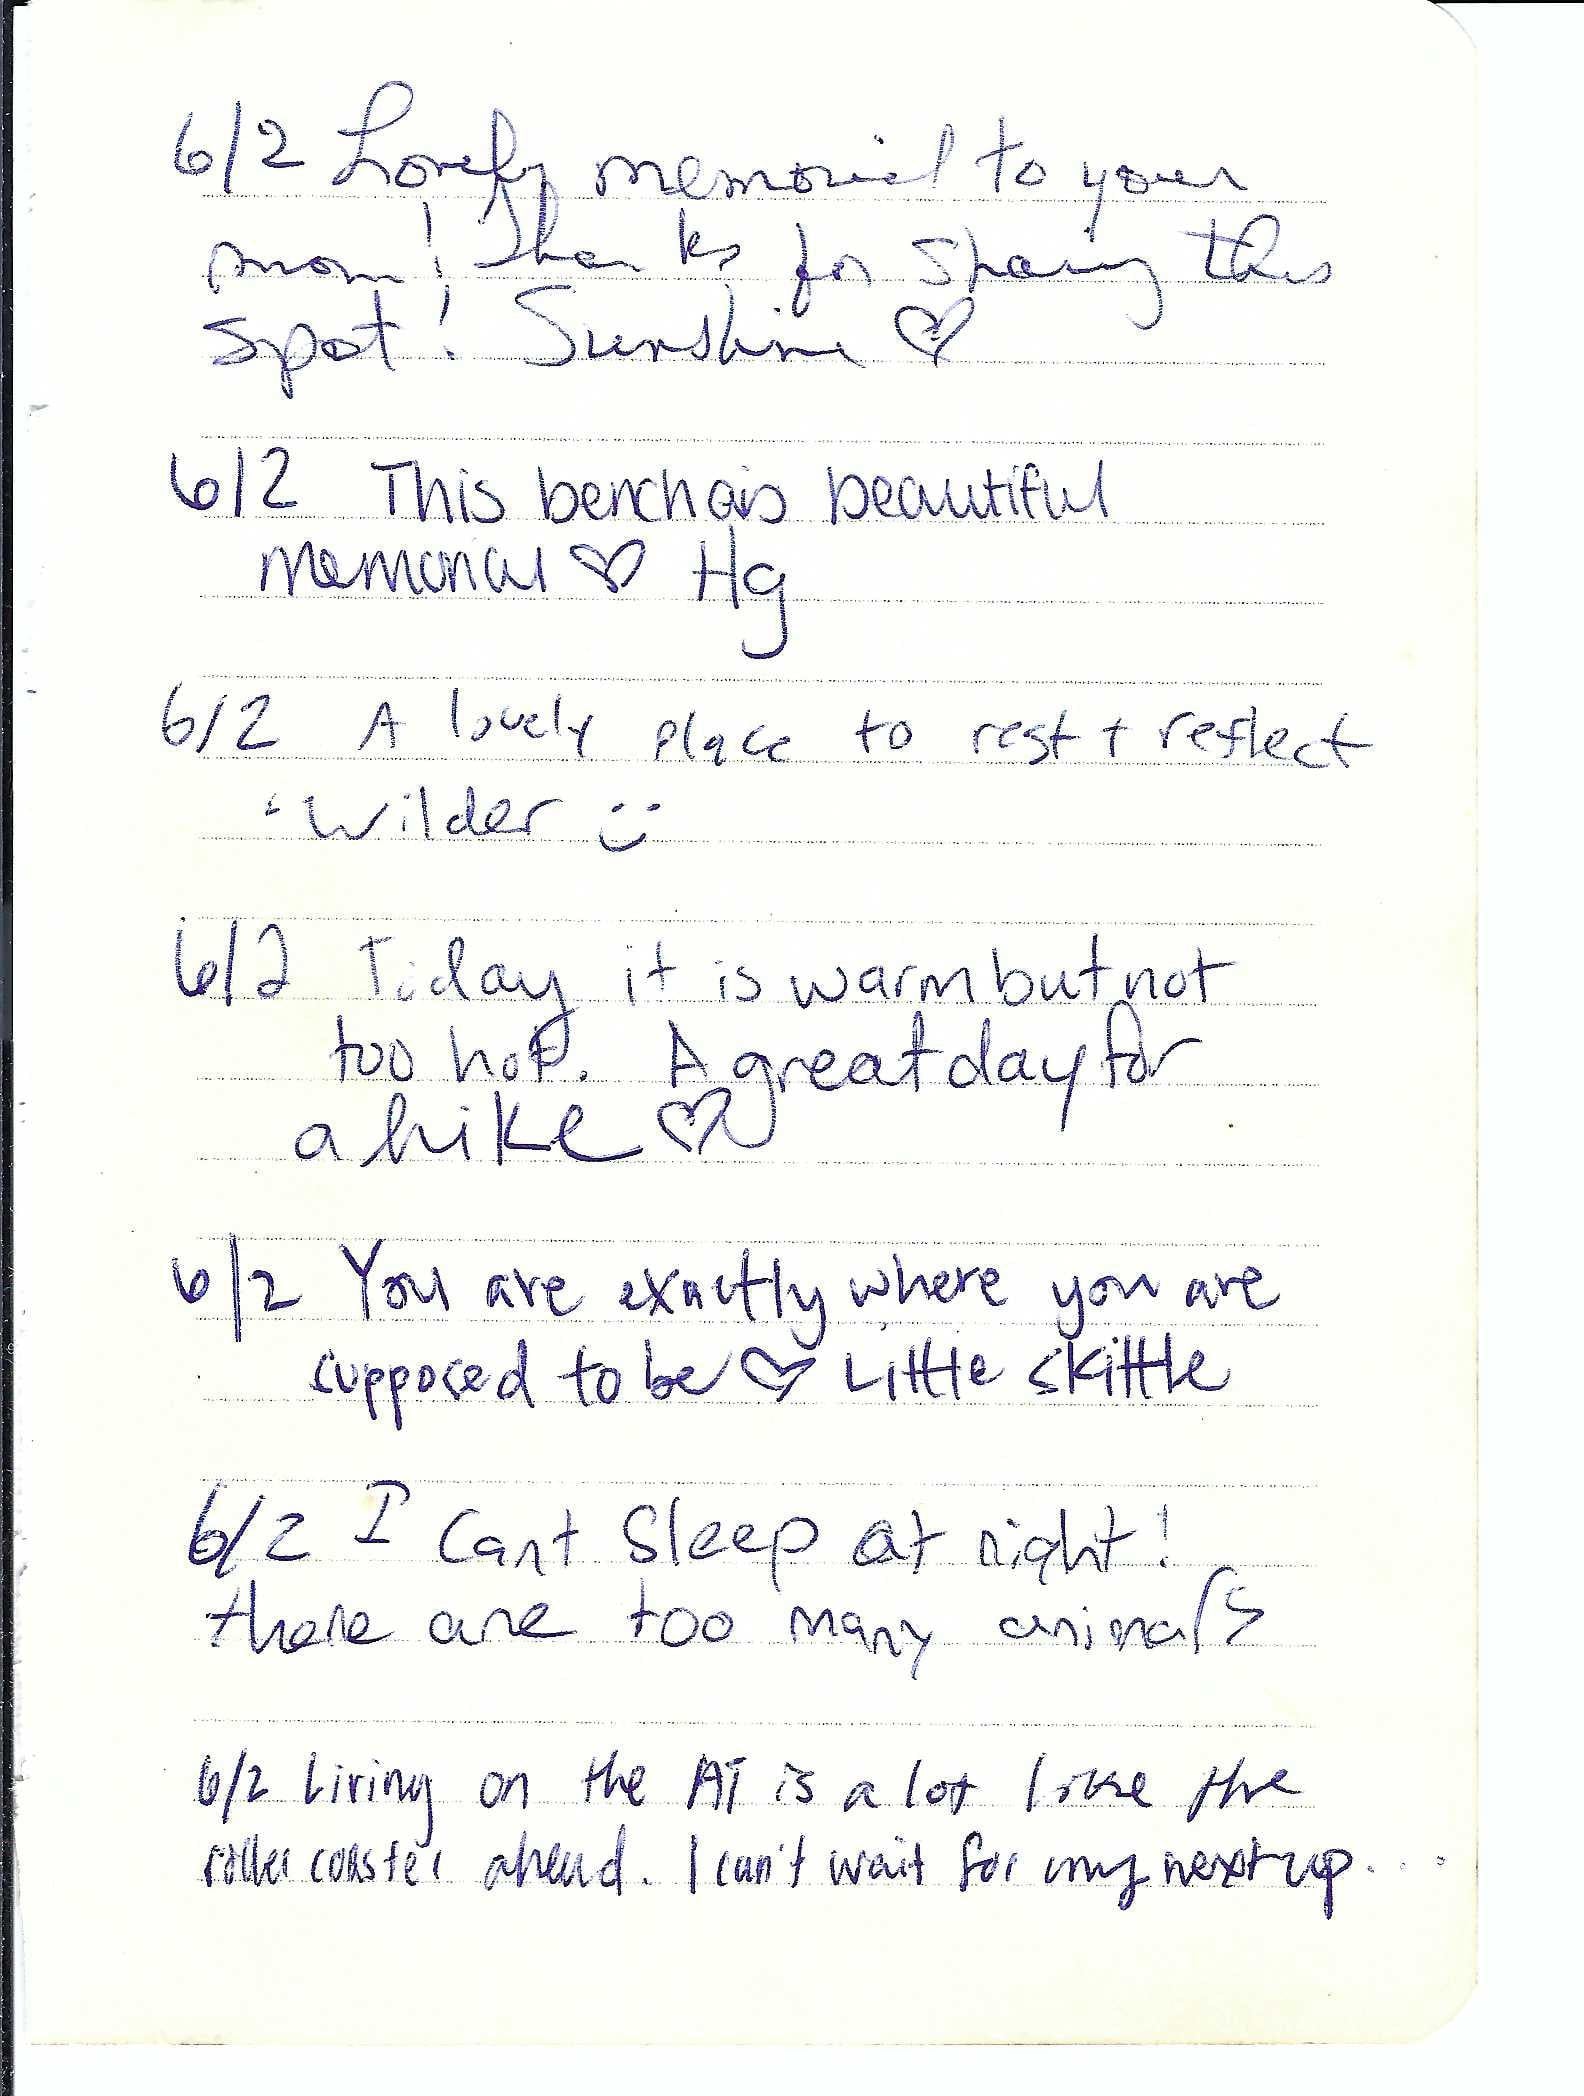 6/2 Lovely memorial to your
mom! Thanks for sharing this
spot! Sunshine ♡
6/2 This bench is beautiful
memorial ♡ Hg
6/2 A lovely place to rest + reflect
- Wilder :)
6/2 Today it is warm but not
too hot. A great day for
a hike ♡
6/2 You are exactly where you are
supposed to be ♡ Little skittle
6/2 I Cant Sleep at night!
there are too many animals
6/2 Living on the AT is a lot like the
roller coaster ahead. I can't wait for my next up...